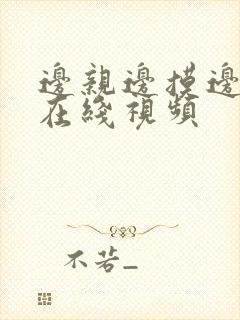 邊親邊摸邊
在綫視頻
不若_